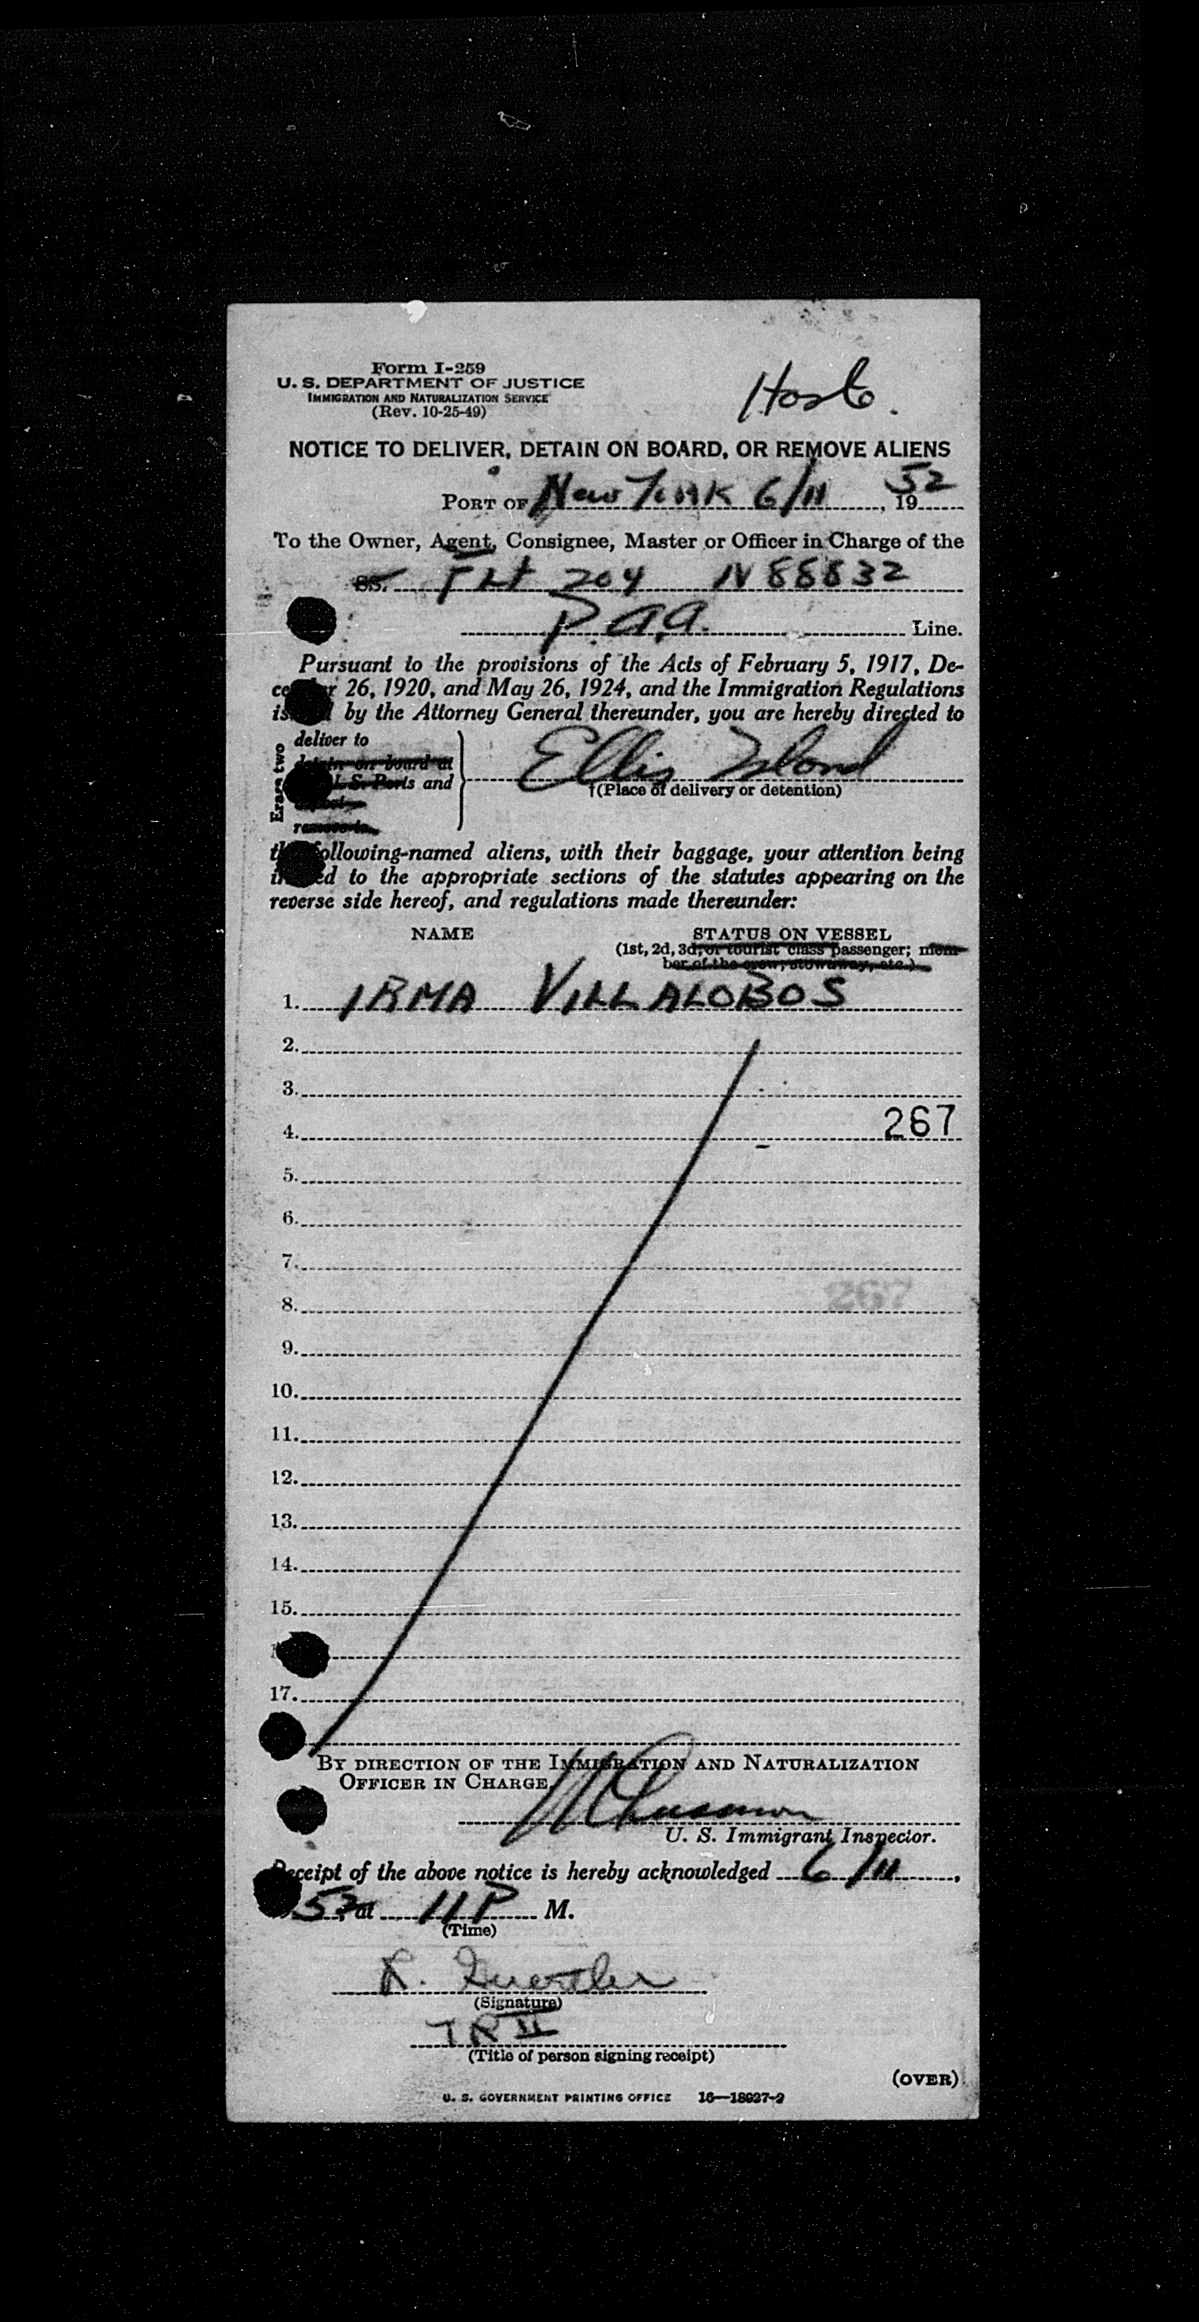 Form I-259
U. S. DEPARTMENT OF JUSTICE
IMMIGRATION AND NATURALIZATION SERVICE
(Rev. 10-25-49)
NOTICE TO DELIVER, DETAIN ON BOARD, OR REMOVE ALIENS
PORT OF New York 6/11, 1952
To the Owner, Agent, Consignee, Master or Officer in Charge of the
SS. FLT 204 N88832
P.A.A. Line.
Pursuant to the provisions of the Acts of February 5, 1917, De-
26, 1920, and May 26, 1924, and the Immigration Regulations
by the Attorney General thereunder, you are hereby directed to
Erase two
deliver to
detain on board at
U. S. Ports and
remove to
Ellis Island
†(Place of delivery or detention)
following-named aliens, with their baggage, your attention being
to the appropriate sections of the statutes appearing on the
reverse side hereof, and regulations made thereunder:
NAME STATUS ON VESSEL
(1st, 2d, 3d, or tourist class passenger; mem-
ber of the crew, stowaway, etc.)
1. IRMA VILLALOBOS
2.
3.
4. 267
5.
6.
7.
8. 267
9.
10.
11.
12.
13.
14.
15.
17.
BY DIRECTION OF THE IMMIGRATION AND NATURALIZATION
OFFICER IN CHARGE,
U. S. Immigrant Inspector.
Receipt of the above notice is hereby acknowledged 6/11,
52, at 11 P M.
(Time)
(Signature)
TR II
(Title of person signing receipt)
(OVER)
U. S. GOVERNMENT PRINTING OFFICE 16—18027-2